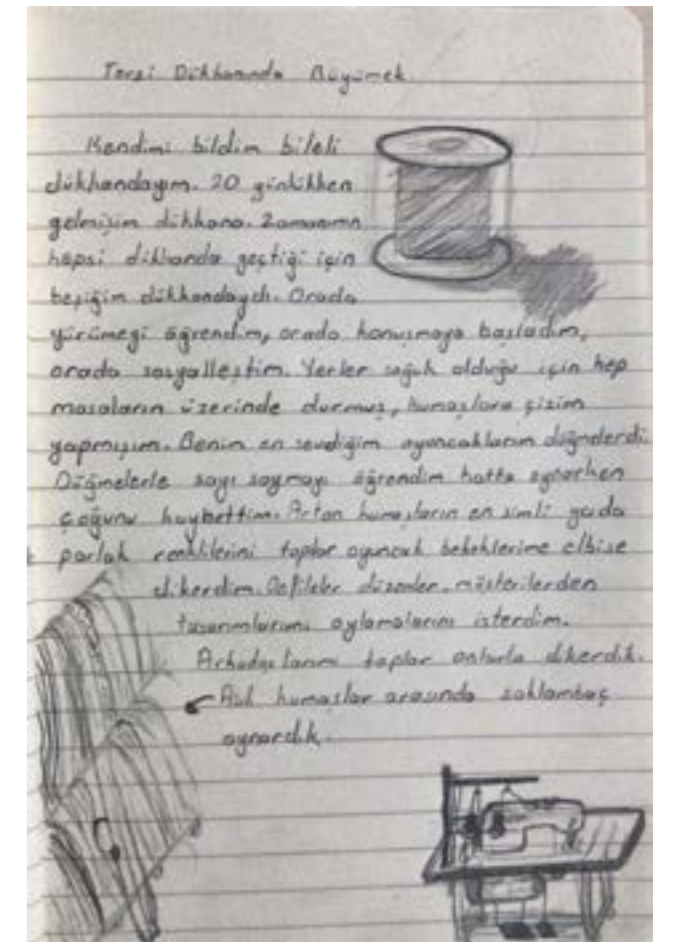 Terzi Dükkanında Büyümek
Kendimi bildim bileli
dükkandayım. 20 günlükken
gelmişim dükkana. Zamanımın
hepsi dükkanda geçtiği için
beşiğim dükkandaydı. Orada
yürümeyi öğrendim, orada konuşmaya başladım,
orada sosyalleştim. Yerler soğuk olduğu için hep
masaların üzerinde durmuş, kumaşlara çizim
yapmışım. Benim en sevdiğim oyuncaklarım düğmelerdi.
Düğmelerle sayı saymayı öğrendim hatta oynarken
çoğunu kaybettim. Artan kumaşların en simli ya da
parlak renklilerini toplar oyuncak bebeklerime elbise
dikerdim. Defileler düzenler, müşterilerden
tasarımlarımı oylamalarını isterdim.
Arkadaşlarımı toplar onlarla dikerdik.
kumaşlar arasında saklambaç
oynardık.